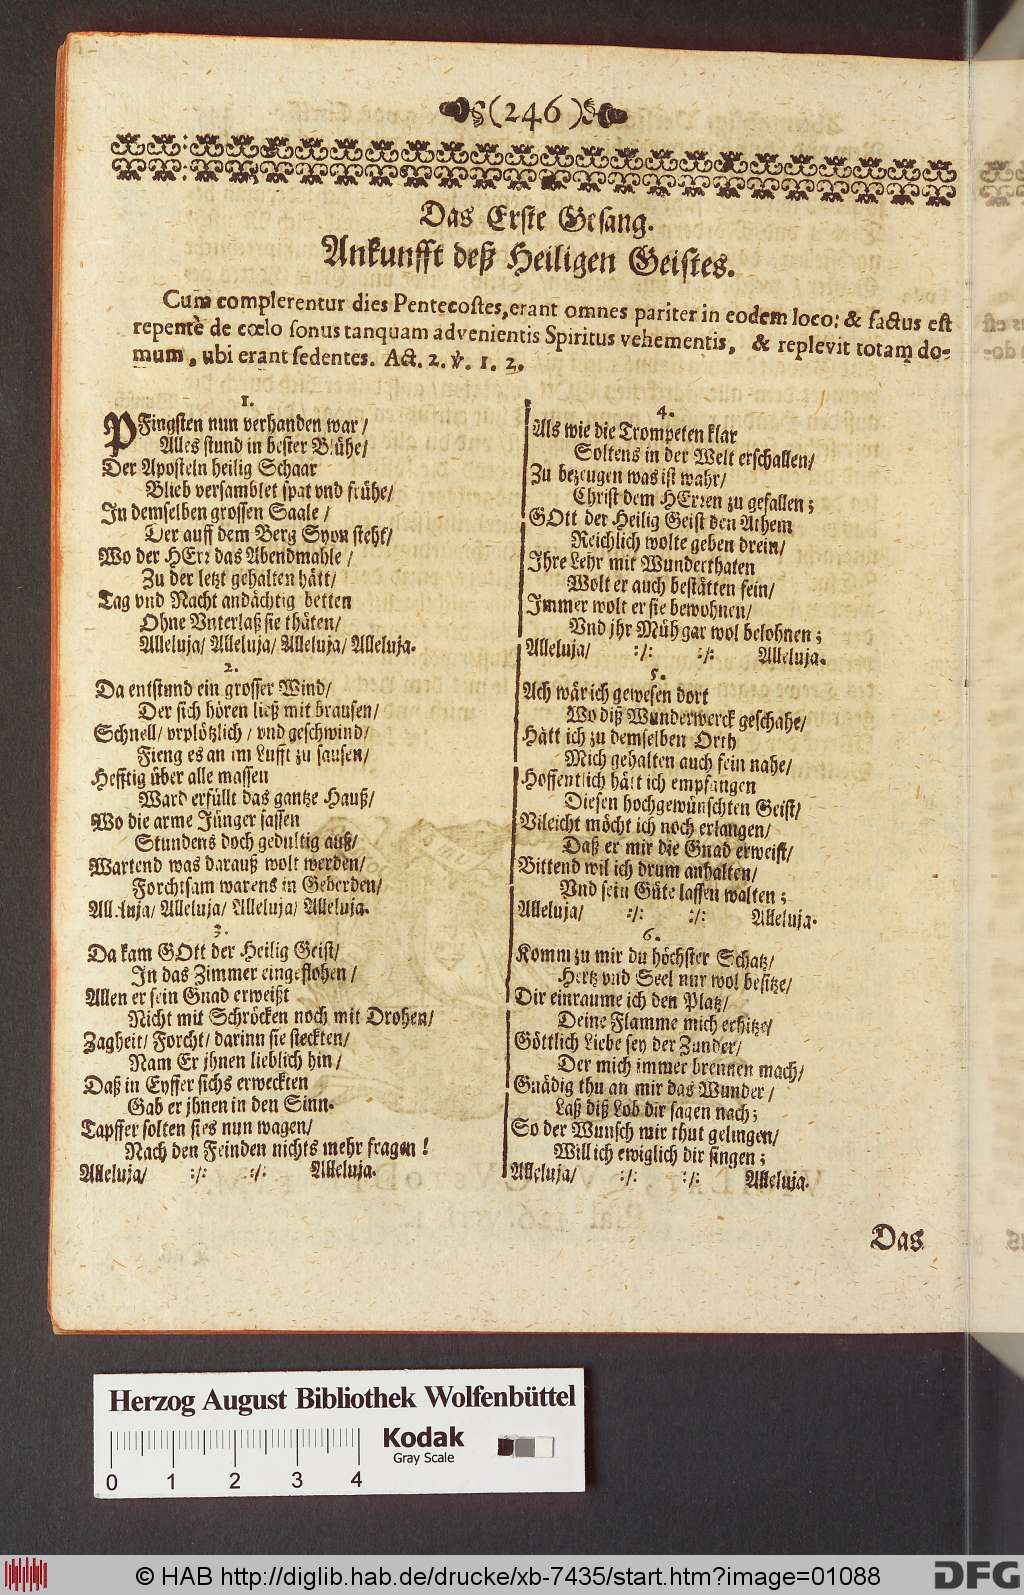 (246)
Das Erste Gesang.
Ankunfft deß Heiligen Geistes.
Cum complerentur dies Pentecostes, erant omnes pariter in eodem loco; & factus est
repentè de cœlo sonus tanquam advenientis Spiritus vehementis, & replevit totam do-
mum, ubi erant sedentes. Act. 2. ℣. 1. 2.
1.
PFingsten nun verhanden war /
Alles stund in bester Blühe/
Der Aposteln heilig Schaar
Blieb versamblet spat vnd frühe/
In demselben grossen Saale /
Der auff dem Berg Syon steht/
Wo der HErr das Abendmahle /
Zu der letzt gehalten hätt/
Tag vnd Nacht andächtig betten
Ohne Vnterlaß sie thäten/
Alleluja/ Alleluja/ Alleluja/ Alleluja.
2.
Da entstund ein grosser Wind/
Der sich hören ließ mit brausen/
Schnell/ vrplötzlich / vnd geschwind/
Fieng es an im Lufft zu sausen/
Hefftig über alle massen
Ward erfüllt das gantze Hauß/
Wo die arme Jünger sassen
Stundens doch gedultig auß/
Wartend was darauß wolt werden/
Forchtsam warens in Geberden/
Alleluja/ Alleluja/ Alleluja/ Alleluja.
3.
Da kam GOtt der Heilig Geist/
In das Zimmer eingeflohen /
Allen er sein Gnad erweißt
Nicht mit Schröcken noch mit Drohen/
Zagheit/ Forcht/ darinn sie steckten/
Nam Er jhnen lieblich hin/
Daß in Eyffer sichs erweckten
Gab er jhnen in den Sinn.
Tapffer solten sies nun wagen/
Nach den Feinden nichts mehr fragen!
Alleluja/ :/: :/: Alleluja.
4.
Als wie die Trompeten klar
Soltens in der Welt erschallen/
Zu bezeugen was ist wahr/
Christ dem HErren zu gefallen;
GOtt der Heilig Geist den Athem
Reichlich wolte geben drein/
Ihre Lehr mit Wunderthaten
Wolt er auch bestätten fein/
Immer wolt er sie bewohnen/
Vnd jhr Müh gar wol belohnen;
Alleluja/ :/: :/: Alleluja.
5.
Ach wär ich gewesen dort
Wo diß Wunderwerck geschahe/
Hätt ich zu demselben Orth
Mich gehalten auch fein nahe/
Hoffentlich hätt ich empfangen
Diesen hochgewünschten Geist/
Vileicht möcht ich noch erlangen/
Daß er mir die Gnad erweist/
Bittend wil ich drum anhalten/
Vnd sein Güte lassen walten;
Alleluja/ :/: :/: Alleluja.
6.
Komm zu mir du höchster Schatz/
Hertz vnd Seel nur wol besitze/
Dir einraume ich den Platz/
Deine Flamme mich erhitze/
Göttlich Liebe sey der Zunder/
Der mich immer brennen mach/
Gnädig thu an mir das Wunder /
Laß diß Lob dir sagen nach;
So der Wunsch mir thut gelingen/
Will ich ewiglich dir singen;
Alleluja/ :/: :/: Alleluja.
Das
Herzog August Bibliothek Wolfenbüttel
Kodak
Gray Scale
0 1 2 3 4
© HAB http://diglib.hab.de/drucke/xb-7435/start.htm?image=01088
DFG